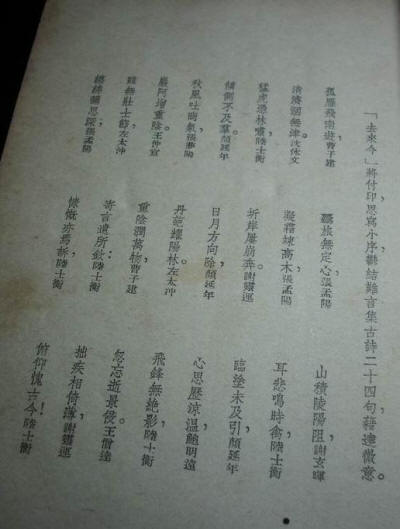 「去來今」將付印思寫小序鬱結難言集古詩二十四句藉達微意。
孤雁飛南遊，曹子建 羈旅無定心，張孟陽 山積陵陽阻，謝玄暉
清濟涸無津，沈休文 凝霜竦高木，張孟陽 耳悲鳴時禽，陸士衡
猛虎憑林嘯，陸士衡 圻岸屢崩奔，謝靈運 臨塗未及引，顏延年
傾側不及羣。顏延年 日月方向除，顏延年 心思歷涼溫，鮑明遠
秋風吐商氣，張孟陽 丹葩耀陽林。左太沖 飛鋒無絕影，陸士衡
巖阿增重陰。王仲宣 重陰潤萬物，曹子建 忽忘逝景侵。王僧達
雖無壯士節，左太沖 寄言遺所欽：陸士衡 拙疾相倚薄，謝靈運
纏綿彌思深。張孟陽 慷慨亦焉訴，陸士衡 俯仰愧古今！陸士衡